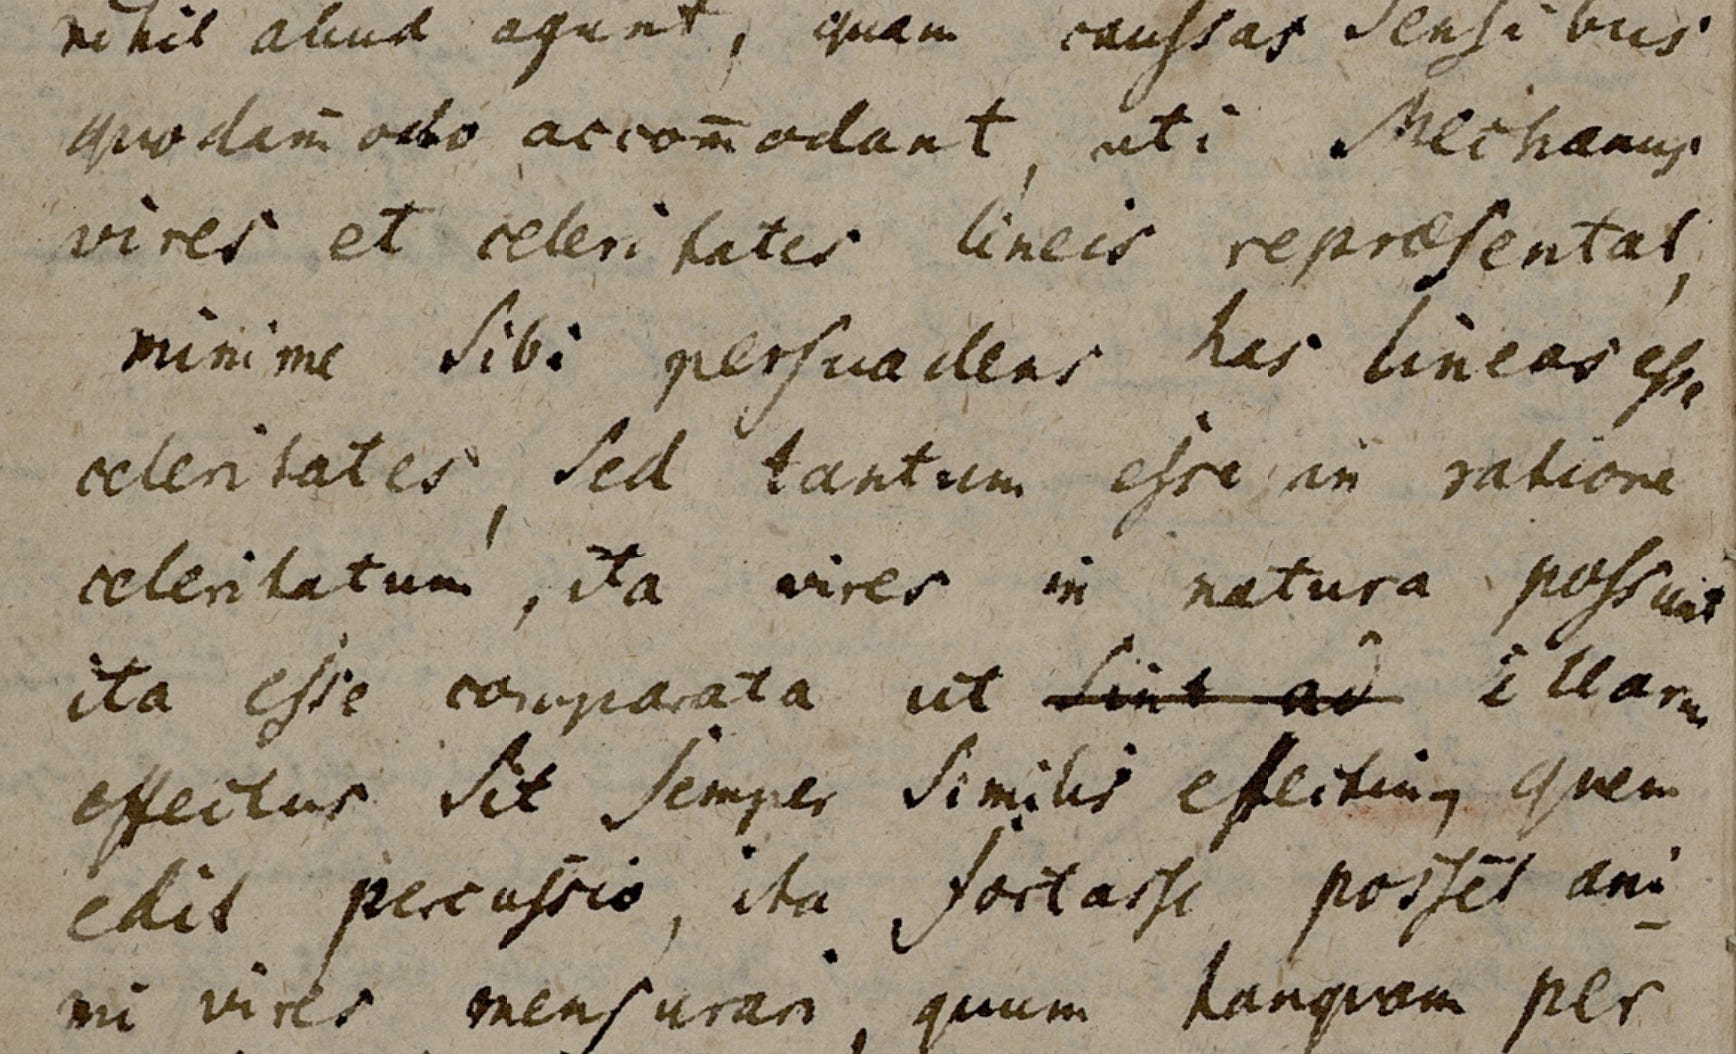 nihil aliud agunt, quam caussas sensibus
quodam̄odo accom̄odant, uti Mechanus
vires et celeritates lineis repræsentat,
minime sibi persuadens has lineas esse
celeritates, sed tantum esse in ratione
celeritatum, ita vires in natura possunt
ita esse comparata ut sint ad illarum
effectus sit semper similis effectui, quem
edit percussio, ita fortasse posset ani-
mi vires mensurari, quum tanquam per